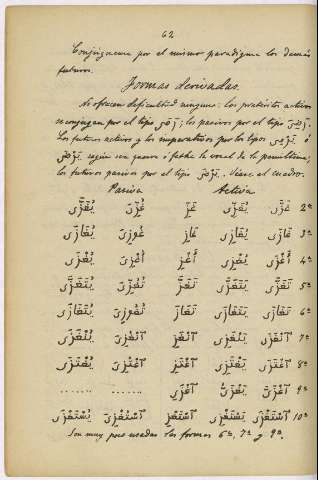 62
Conjúguense por el mismo paradigma los demás
futuros.
Formas derivadas.
No ofrecen dificultad ninguna: los pretéritos activos
se conjugan por el tipo رَمَى; los pasivos por el tipo رُمِىَ.
Los futuros activos y los imperativos por los tipos يَرْمِى ó
يَرْضَى según sea quesra ó fatha la vocal de la penúltima;
los futuros pasivos por el tipo يُرْمَى. Véase el cuadro.
Pasiva Activa
2ª غَزَّى يُغَزِّى غَزِّ غُزِّىَ يُغَزَّى
3ª غَازَى يُغَازِى غَازِ غُوزِىَ يُغَازَى
4ª أَغْزَى يُغْزِى أَغْزِ أُغْزِىَ يُغْزَى
5ª تَغَزَّى يَتَغَزَّى تَغَزَّ تُغُزِّىَ يُتَغَزَّى
6ª تَغَازَى يَتَغَازَى تَغَازَ تُغُوزِىَ يُتَغَازَى
7ª ٱنْغَزَى يَنْغَزِى ٱنْغَزِ ٱنْغُزِىَ يُنْغَزَى
8ª ٱغْتَزَى يَغْتَزِى ٱغْتَزِ ٱغْتُزِىَ يُغْتَزَى
9ª ........ ........
10ª ٱسْتَغْزَى يَسْتَغْزِى ٱسْتَغْزِ ٱسْتُغْزِىَ يُسْتَغْزَى
Son muy poco usadas las formas 6ª, 7ª y 9ª.